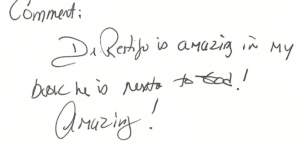 Comment:
Dr Restifo is amazing in my
book he is next to God!
Amazing!